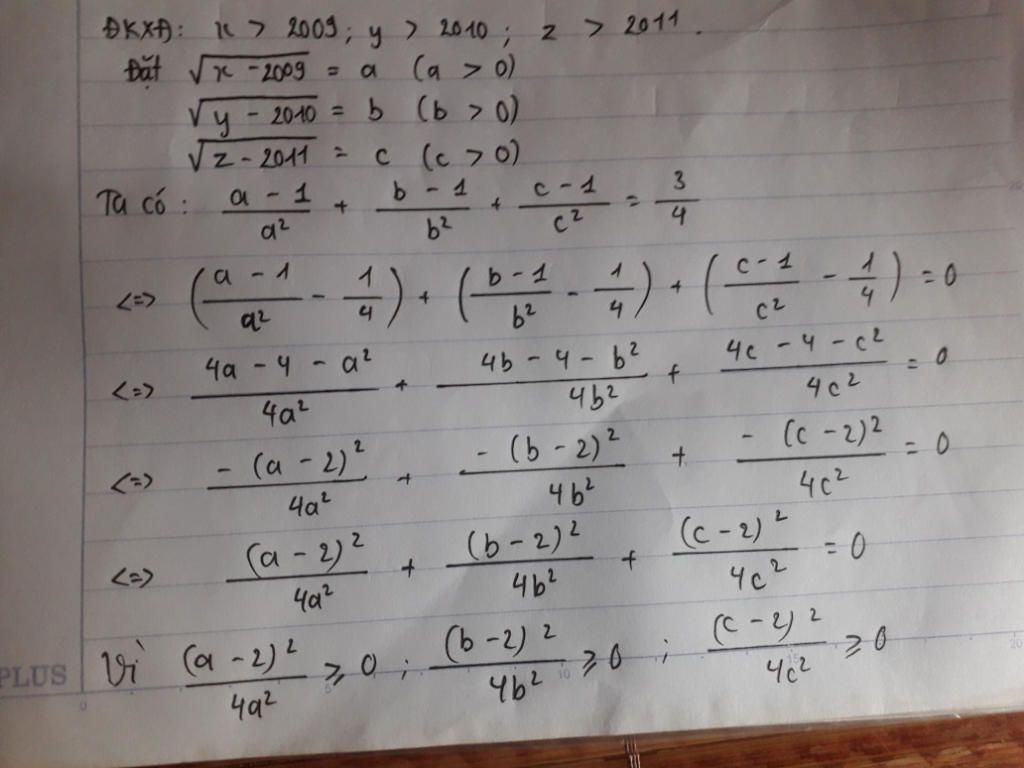 ĐKXĐ: x > 2009; y > 2010; z > 2011.
Đặt √(x - 2009) = a (a > 0)
√(y - 2010) = b (b > 0)
√(z - 2011) = c (c > 0)
Ta có: (a - 1)/a² + (b - 1)/b² + (c - 1)/c² = 3/4
<=> ((a - 1)/a² - 1/4) + ((b - 1)/b² - 1/4) + ((c - 1)/c² - 1/4) = 0
<=> (4a - 4 - a²)/4a² + (4b - 4 - b²)/4b² + (4c - 4 - c²)/4c² = 0
<=> -(a - 2)²/4a² + -(b - 2)²/4b² + -(c - 2)²/4c² = 0
<=> (a - 2)²/4a² + (b - 2)²/4b² + (c - 2)²/4c² = 0
Vì (a - 2)²/4a² ⩾ 0; (b - 2)²/4b² ⩾ 0; (c - 2)²/4c² ⩾ 0
PLUS
0 5 10 15 20
20